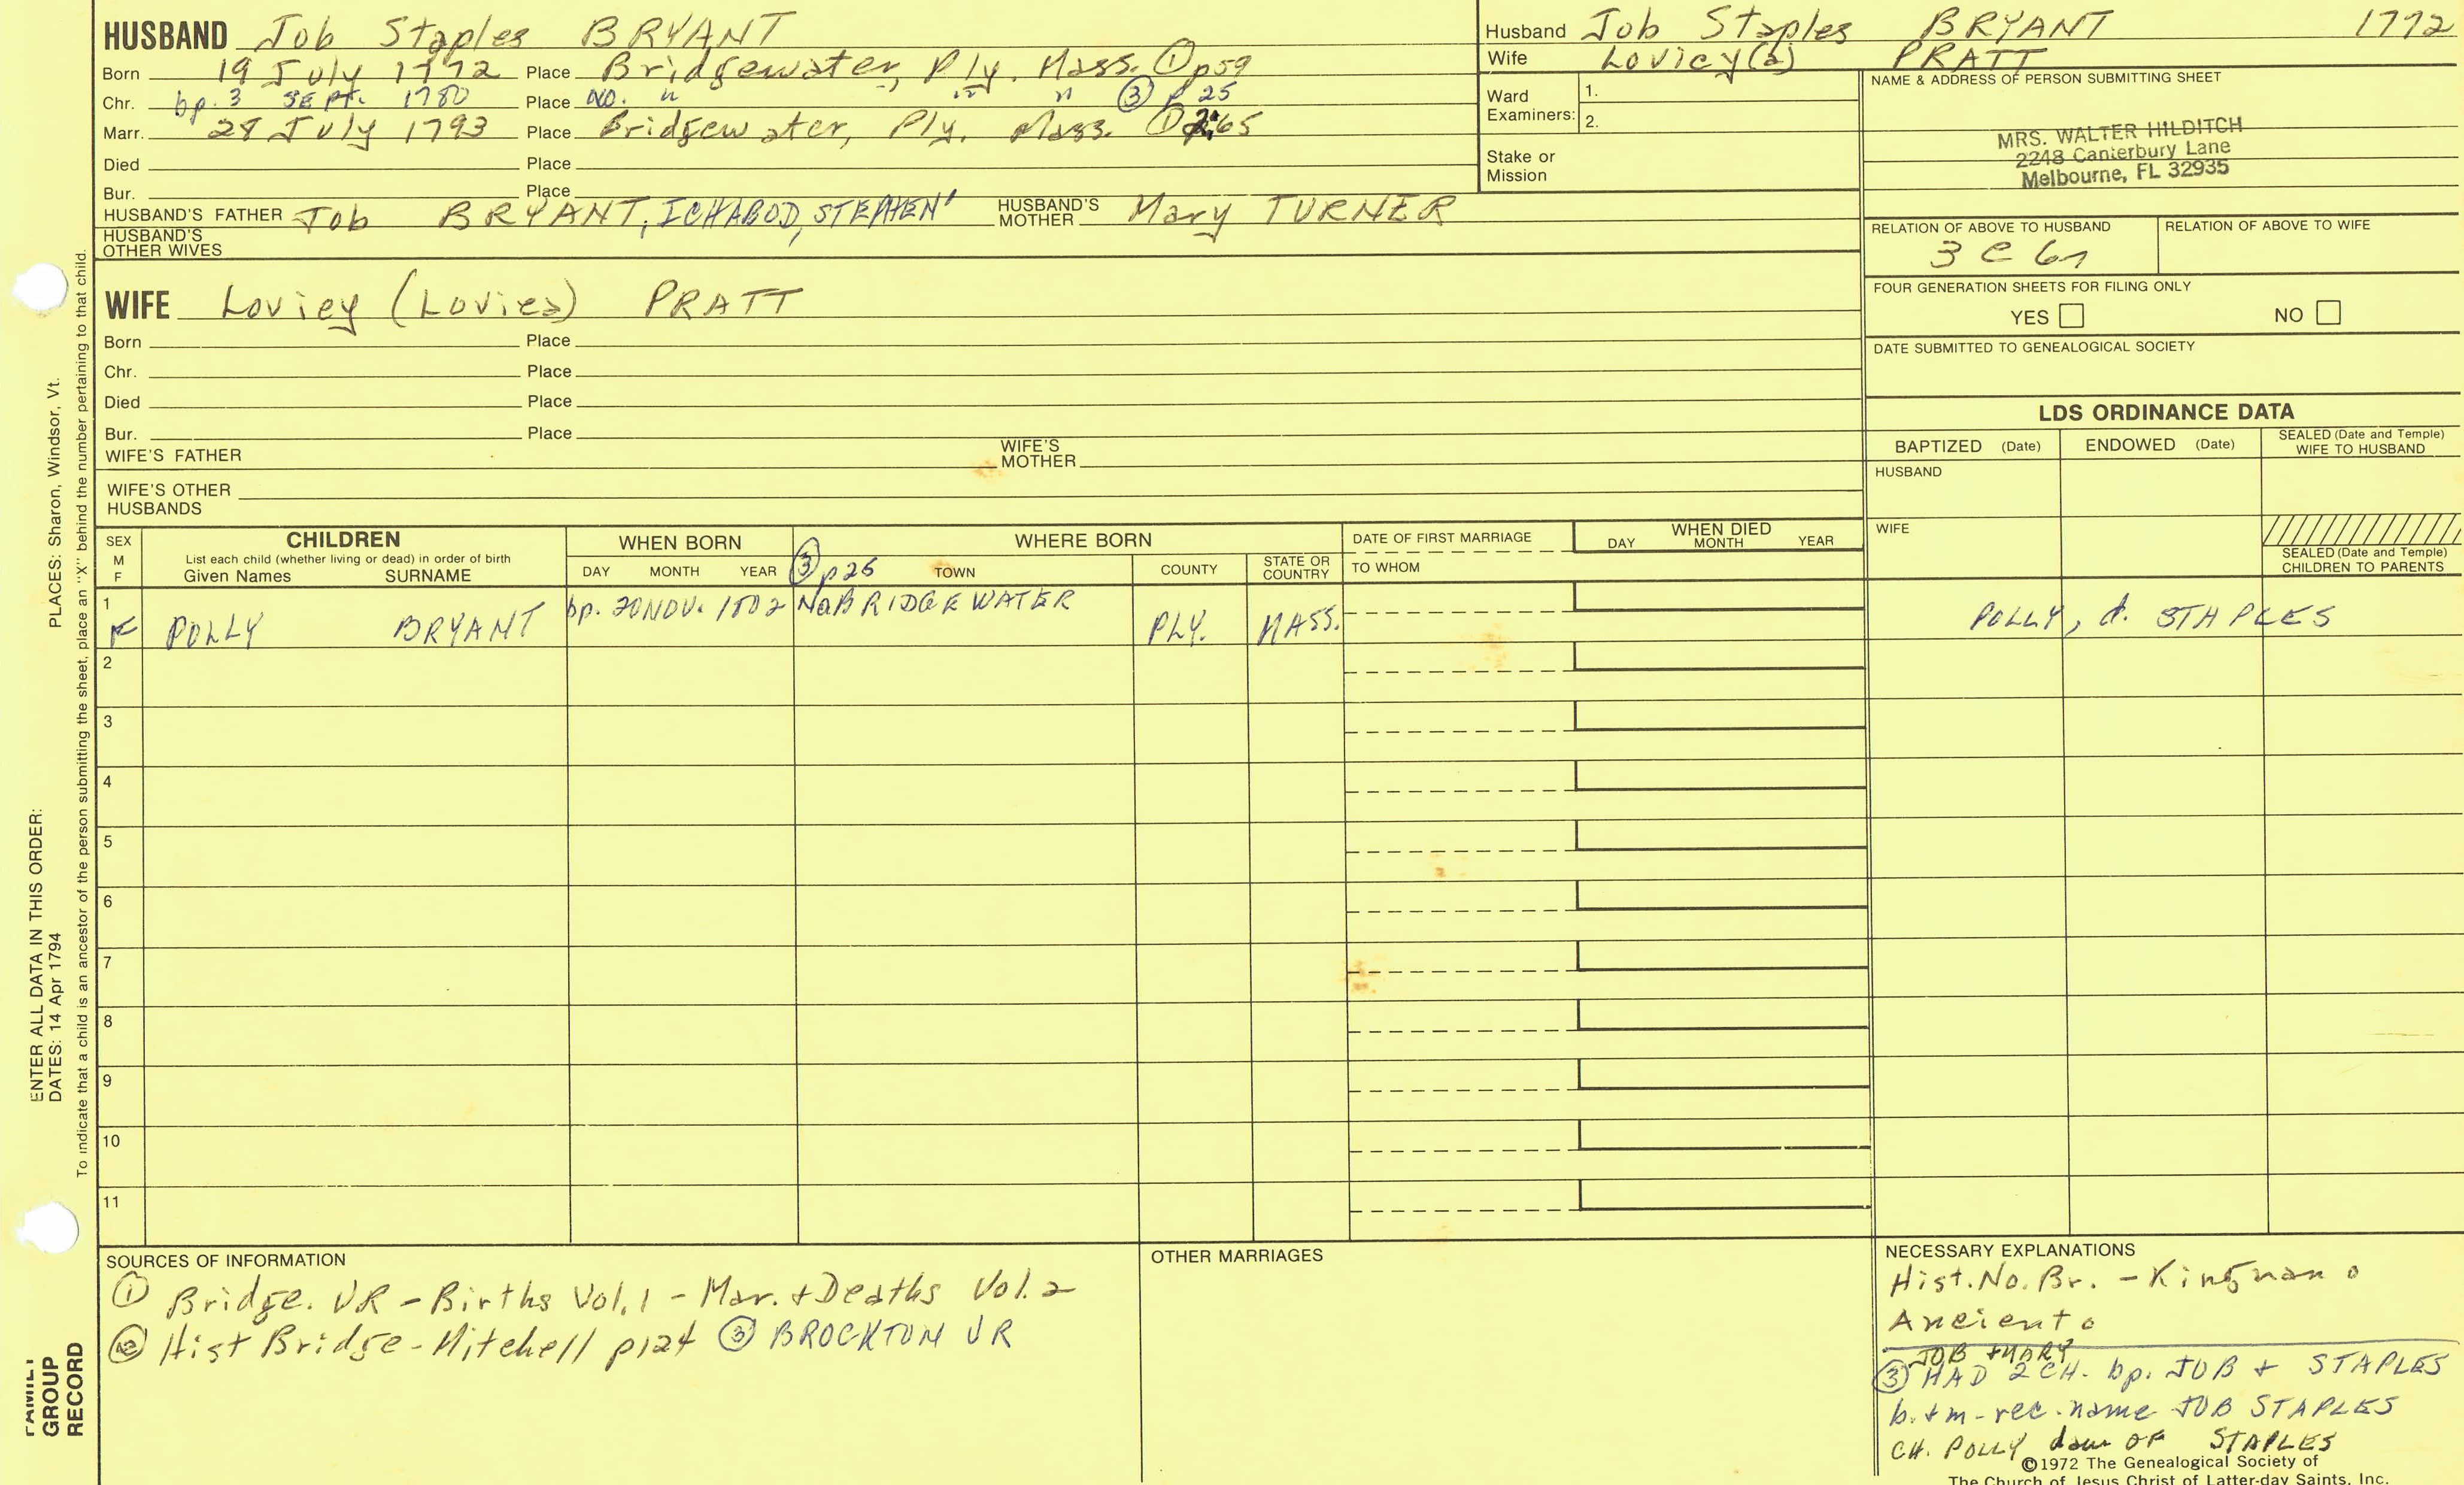 HUSBAND Job Staples BRYANT
Born 19 July 1772 Place Bridgewater, Ply. Mass. ① p59
Chr. bp. 3 SEPT. 1780 Place NO. " " " ③ p 25
Marr. 28 July 1793 Place Bridgewater, Ply. Mass. ① 65
Died Place
Bur. Place
HUSBAND'S FATHER Job BRYANT, ICHABOD, STEPHEN' HUSBAND'S MOTHER Mary TURNER
HUSBAND'S OTHER WIVES
Husband Job Staples BRYANT 1772
Wife Lovicy(a) PRATT
Ward Examiners: 1.
2.
Stake or Mission
NAME & ADDRESS OF PERSON SUBMITTING SHEET
MRS. WALTER HILDITCH
2248 Canterbury Lane
Melbourne, FL 32935
RELATION OF ABOVE TO HUSBAND RELATION OF ABOVE TO WIFE
3 C 6
FOUR GENERATION SHEETS FOR FILING ONLY
YES NO
DATE SUBMITTED TO GENEALOGICAL SOCIETY
WIFE Lovicy (Lovica) PRATT
Born Place
Chr. Place
Died Place
Bur. Place
WIFE'S FATHER WIFE'S MOTHER
WIFE'S OTHER HUSBANDS
LDS ORDINANCE DATA
BAPTIZED (Date) ENDOWED (Date) SEALED (Date and Temple) WIFE TO HUSBAND
HUSBAND
WIFE
SEALED (Date and Temple) CHILDREN TO PARENTS
SEX M F CHILDREN
List each child (whether living or dead) in order of birth
Given Names SURNAME
WHEN BORN
DAY MONTH YEAR
WHERE BORN
③ p25 TOWN COUNTY STATE OR COUNTRY
DATE OF FIRST MARRIAGE
TO WHOM
WHEN DIED
DAY MONTH YEAR
1 F POLLY BRYANT bp. 20 NOV. 1802 No. BRIDGEWATER PLY. MASS. POLLY, d. STAPLES
2
3
4
5
6
7
8
9
10
11
SOURCES OF INFORMATION
① Bridge. VR - Births Vol. 1 - Mar. + Deaths Vol. 2
② Hist Bridge - Mitchell p124 ③ BROCKTON VR
OTHER MARRIAGES
NECESSARY EXPLANATIONS
Hist. No. Br. - Kingman o
Ancient o
JOB + MARY
③ HAD 2 CH. bp. JOB + STAPLES
b. + m - rec. name JOB STAPLES
CH. POLLY dau OF STAPLES
©1972 The Genealogical Society of
The Church of Jesus Christ of Latter-day Saints, Inc.
PLACES: Sharon, Windsor, Vt.
ENTER ALL DATA IN THIS ORDER:
DATES: 14 Apr 1794
To indicate that a child is an ancestor of the person submitting the sheet, place an "X" behind the number pertaining to that child.
FAMILY
GROUP
RECORD